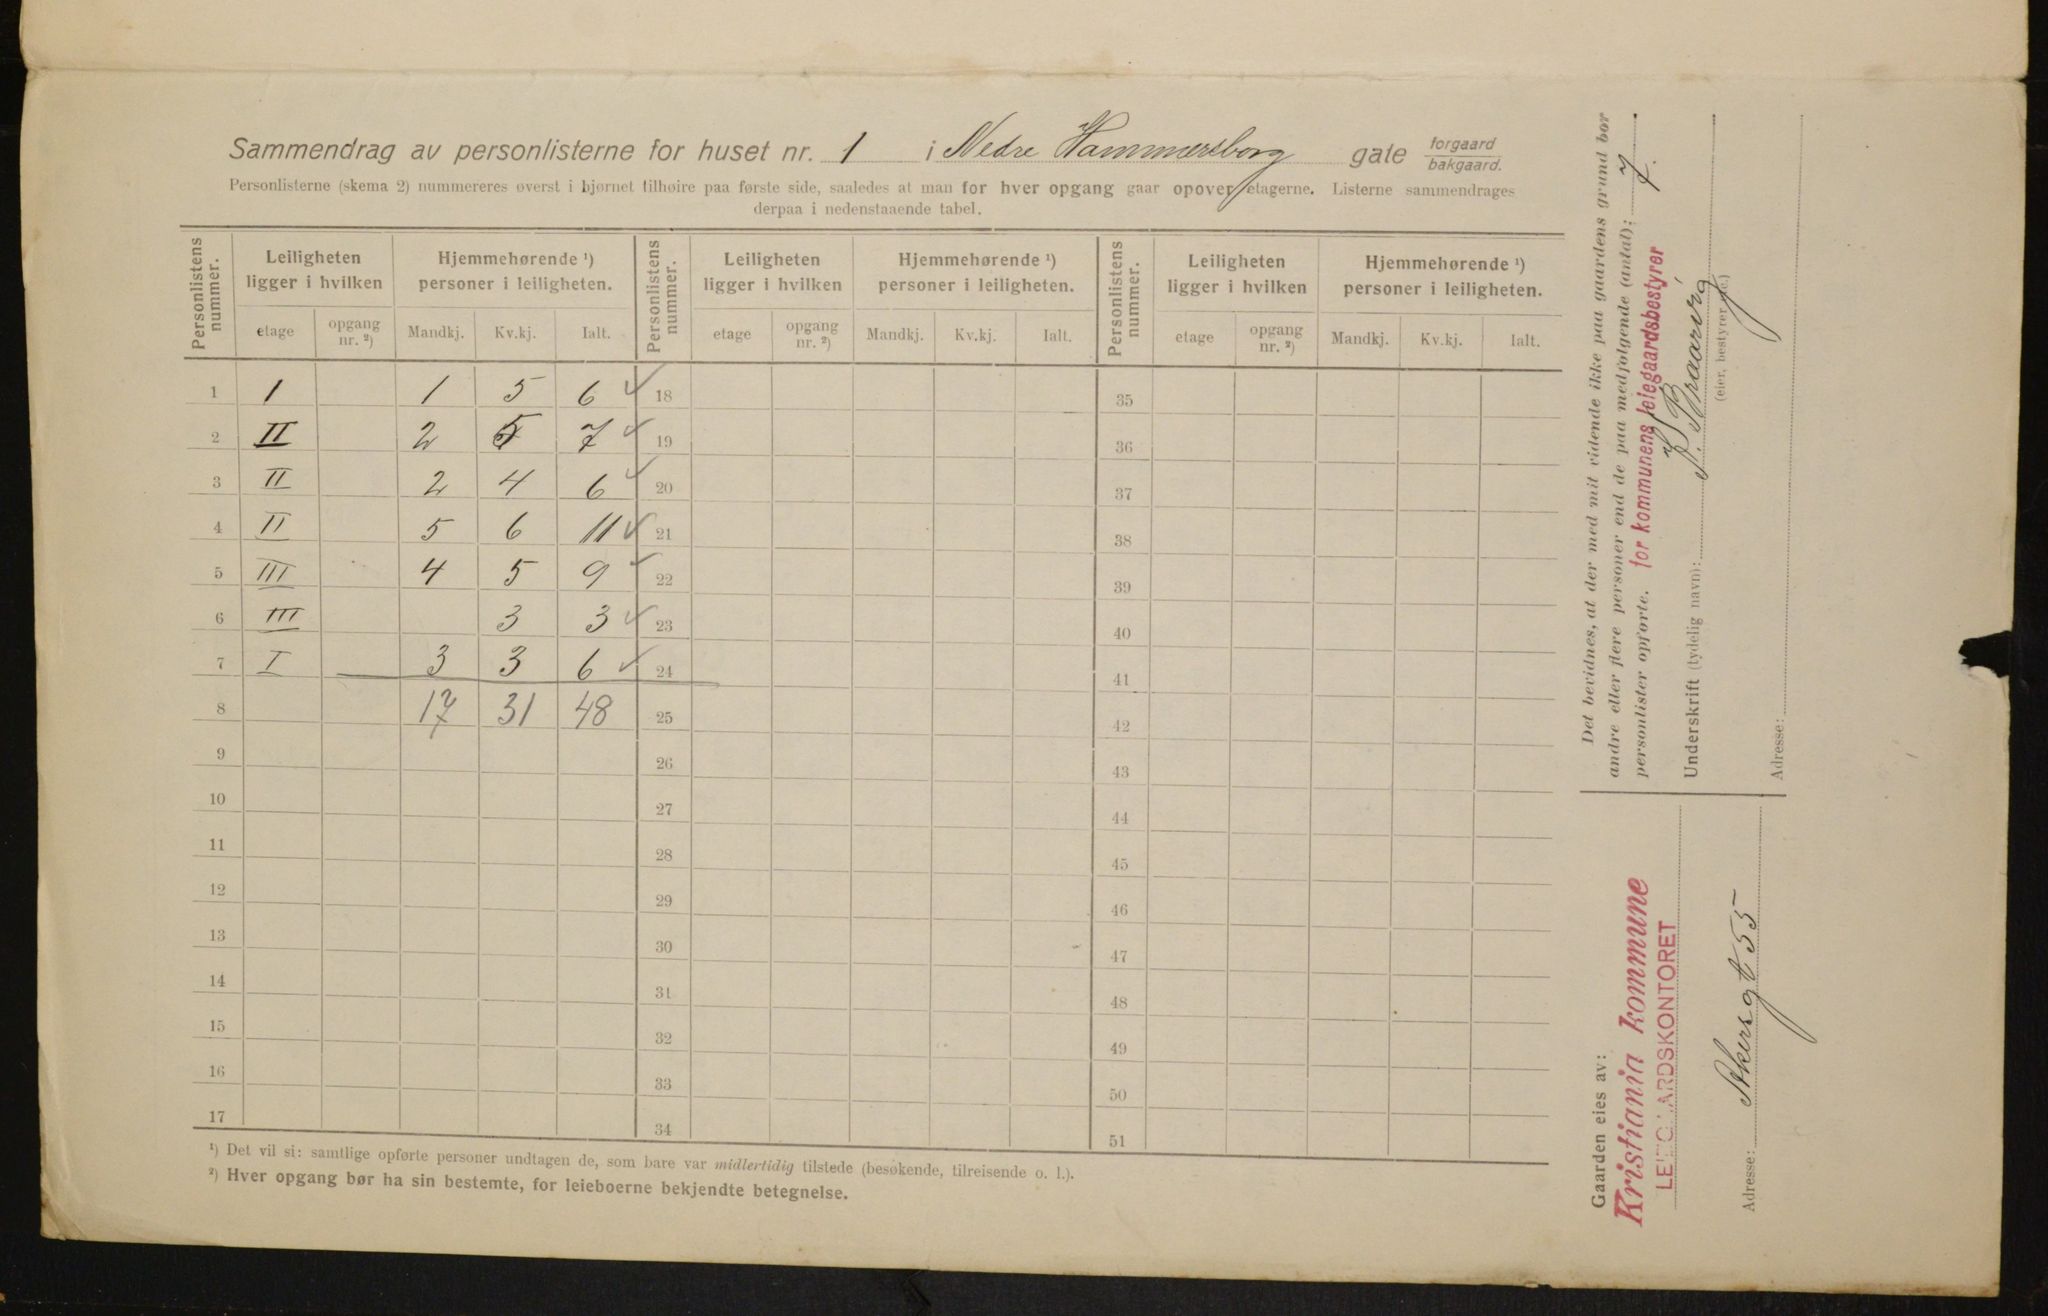 Sammendrag av personlisterne for huset nr. 1 i Nedre Hammersborg gate forgaard bakgaard.
Personlisterne (skema 2) nummereres øverst i hjørnet tilhøire paa første side, saaledes at man for hver opgang gaar opover etagerne. Listerne sammendrages
derpaa i nedenstaaende tabel.
Personlistens nummer. Leiligheten ligger i hvilken Hjemmehørende ¹) personer i leiligheten. Personlistens nummer. Leiligheten ligger i hvilken Hjemmehørende ¹) personer i leiligheten. Personlistens nummer. Leiligheten ligger i hvilken Hjemmehørende ¹) personer i leiligheten.
etage opgang nr. ²) Mandkj. Kv.kj. Ialt. etage opgang nr. ²) Mandkj. Kv.kj. Ialt. etage opgang nr. ²) Mandkj. Kv.kj. Ialt.
1 I 1 5 6 ✓ 18 35
2 II 2 5 7 ✓ 19 36
3 II 2 4 6 ✓ 20 37
4 II 5 6 11 ✓ 21 38
5 III 4 5 9 ✓ 22 39
6 III 3 3 ✓ 23 40
7 I 3 3 6 ✓ 24 41
8 17 31 48 25 42
9 26 43
10 27 44
11 28 45
12 29 46
13 30 47
14 31 48
15 32 49
16 33 50
17 34 51
¹) Det vil si: samtlige opførte personer undtagen de, som bare var midlertidig tilstede (besøkende, tilreisende o. l.).
²) Hver opgang bør ha sin bestemte, for leieboerne bekjendte betegnelse.
Det bevidnes, at der med mit vidende ikke paa gaardens grund bor
andre eller flere personer end de paa medfølgende (antal): 7.
personlister opførte. for kommunens leiegaardsbestyrer
Underskrift (tydelig navn):
(eier, bestyrer etc.)
Adresse:
Gaarden eies av:
Kristiania kommune
LEIEGAARDSKONTORET
Adresse: Akersgt 55